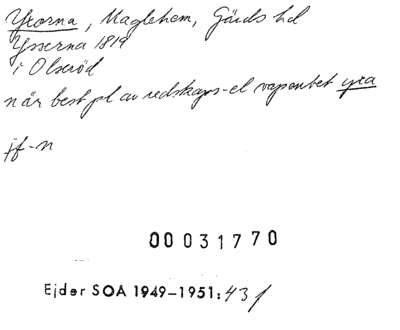 Yxorna, Maglehem, Gärds hd
Yxserna 1819
i Olseröd
n är best pl av redskaps- el vapenbet yxa
jf-n
00031770
Ejder SOA 1949-1951:431